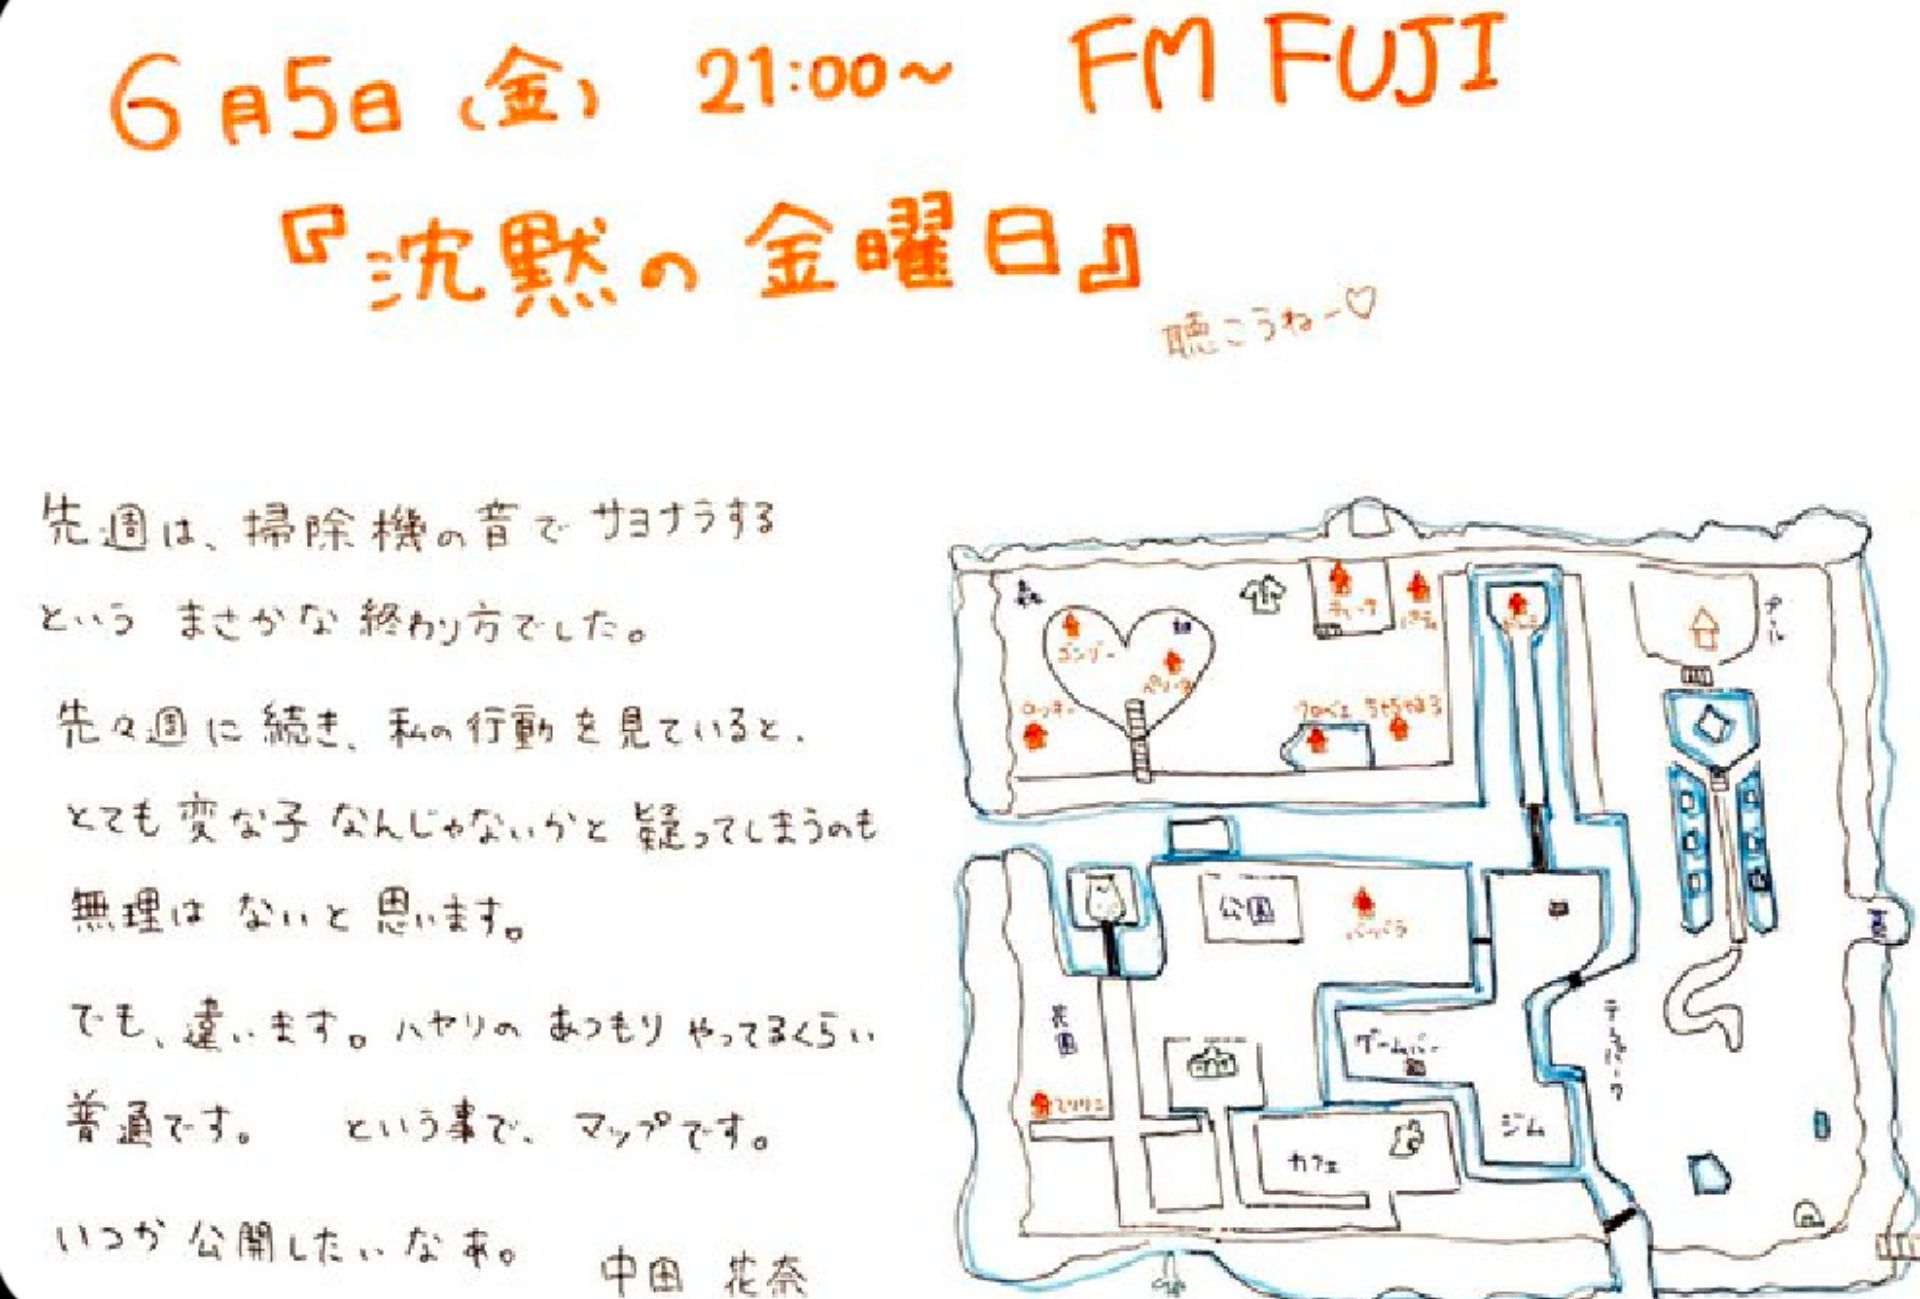 6月5日(金) 21:00～ FM FUJI
『沈黙の金曜日』
聴こうねー♡
先週は、掃除機の音でサヨナラする
という まさかな終わり方でした。
先々週に続き、私の行動を見ていると、
とても変な子なんじゃないかと疑ってしまうのも
無理はないと思います。
でも、違います。ハヤリのあつもりやってるくらい
普通です。 という事で、マップです。
いつか公開したいなあ。 中田 花奈
プール
ゴンゾー
ロッキー
クロベエ
ちゃちゃまる
公園
バーバラ
花園
マリリン
ゲームバー
ジム
カフェ
テーマパーク